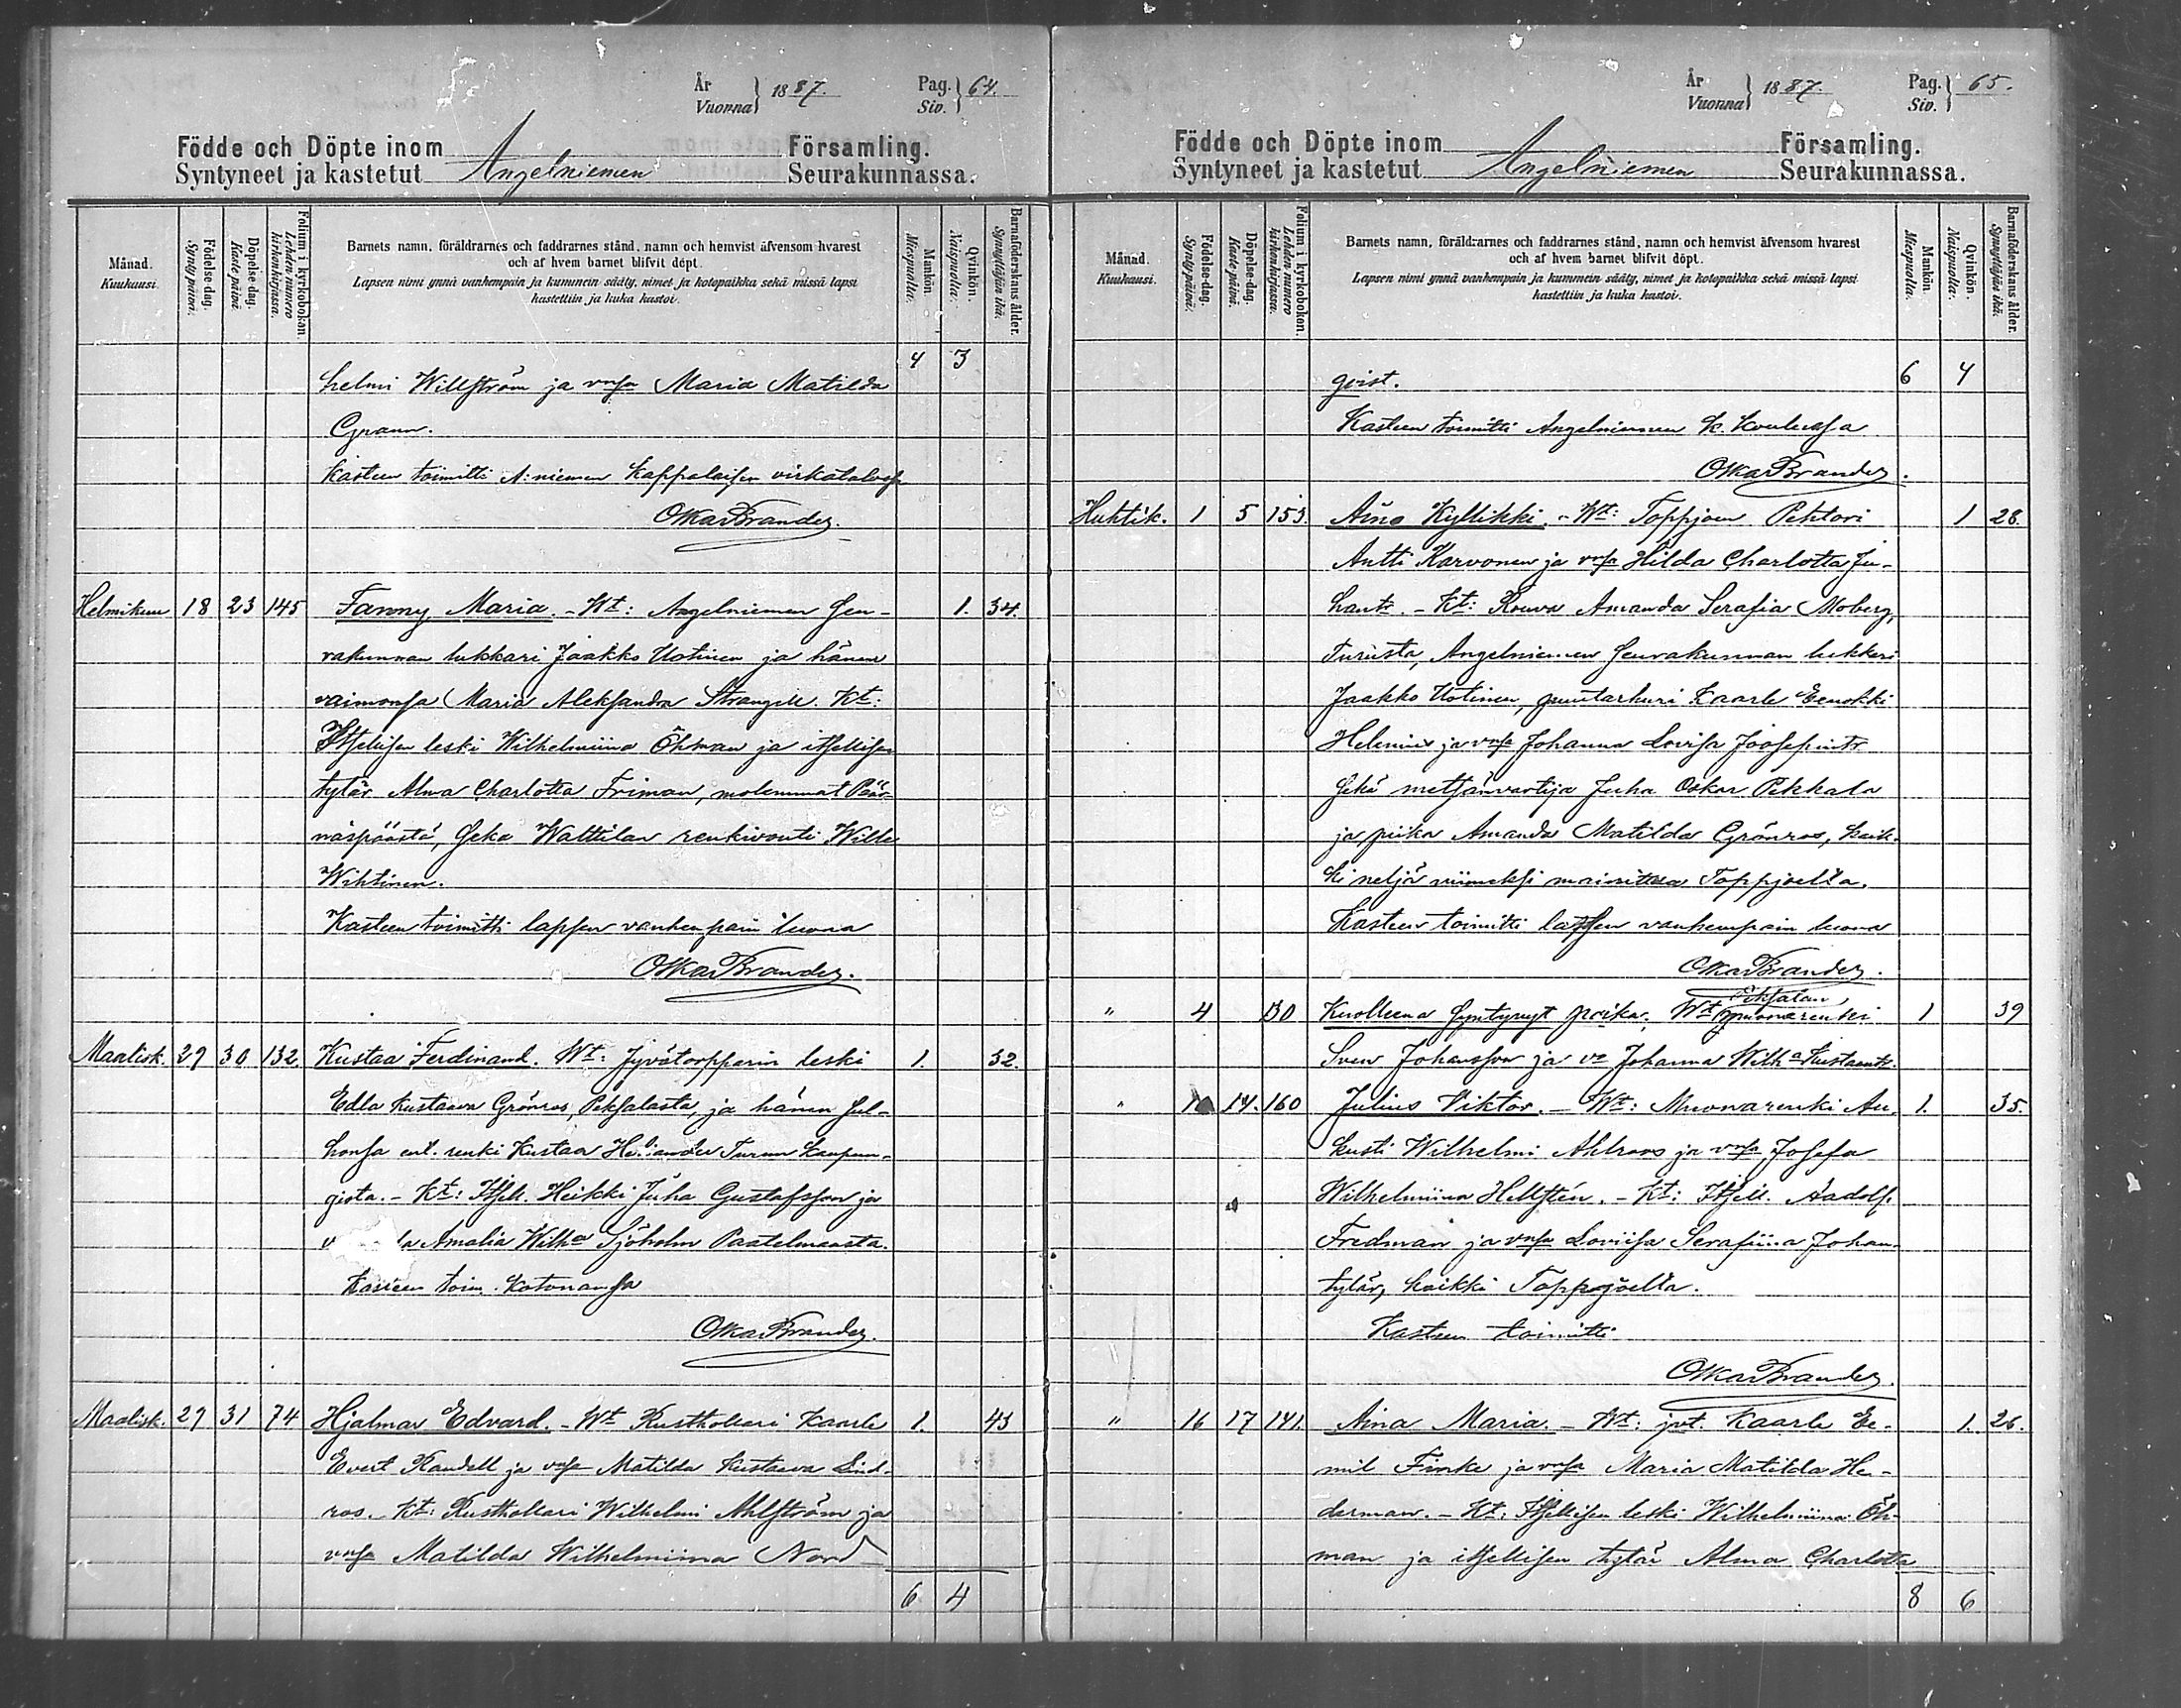 År
Vuonna } 1887.
Pag.
Siv. } 64.
Födde och Döpte inom Angelniemen Församling.
Syntyneet ja kastetut Seurakunnassa.
Månad. Kuukausi.
Födelse-dag. Synty päivä.
Döpelse-dag. Kaste päivä.
Folium i kyrkobokan. Lehden numero kirkonkirjassa.
Barnets namn, föräldrarnes och faddrarnes stånd, namn och hemvist äfvensom hvarest
och af hvem barnet blifvit döpt.
Lapsen nimi ynnä vanhempain ja kummein sääty, nimet ja kotopaikka sekä missä lapsi
kastettiin ja kuka kastoi.
Mankön. Miespuolta.
Qvinkön. Naispuolta.
Barnaföderskans ålder. Synnyttäjän ikä.
4 3
helmi Willström ja vnsa Maria Matilda
Grann.
Kasteen toimitti A:niemen Kappalaisen virkatalossa
Oskar Brander.
Helmikuu 18 23 145 Fanny Maria. - Wt: Angelniemen Seu- 1. 34.
rakunnan lukkari Jaakko Uotinen ja hänen
vaimonsa Maria Aleksandra Strangell. Kt:
Itsellisen leski Wilhelmiina Öhman ja itsellisen
tytär Alma Charlotta Friman, molemmat Pään-
niäspäästä, Seka Walttilan renkivouti Wille
Wihtinen.
Kasteen toimitti lapsen vanhempain luona
Oskar Brander.
Maalisk. 29 30 132. Kustaa Ferdinand. Wt: Jyvätorpparin leski 1. 32.
Edla Kustaava Grönros, Peksalasta, ja hänen Sul-
honsa ent. renki Kustaa Helander Turun kaupun-
gista. - Kt: Itsell. Heikki Juha Gustafsson ja
Amalia Wilha Sjöholm Paatelmaasta.
Kasteen toim. Kotonansa
Oskar Brander.
Maalisk. 29 31 74 Hjalmar Edvard. - Wt Rusthollari Kaarle 1. 43
Evert Randell ja vnsa Matilda Kustaava Lind-
ros. Kt: Rusthollari Wilhelmi Ahlström ja
vnsa Matilda Wilhelmiina Nord
6 4
År
Vuonna } 1887.
Pag.
Siv. } 65.
Födde och Döpte inom Angelniemen Församling.
Syntyneet ja kastetut Seurakunnassa.
Månad. Kuukausi.
Födelse-dag. Synty päivä.
Döpelse-dag. Kaste päivä.
Folium i kyrkobokon. Lehden numero kirkonkirjassa.
Barnets namn, föräldrarnes och faddrarnes stånd, namn och hemvist äfvensom hvarest
och af hvem barnet blifvit döpt.
Lapsen nimi ynnä vanhempain ja kummein sääty, nimet ja kotopaikka sekä missä lapsi
kastettiin ja kuka kastoi.
Mankön. Miespuolta.
Qvinkön. Naispuolta.
Barnaföderskans ålder. Synnyttäjän ikä.
qvist. 6 4
Kasteen toimitti Angelniemen K. Koulussa
Oskar Brander.
Huhtik. 1 5 153. Aino Kyllikki. - Wt: Toppjoen Pehtori 1 28.
Antti Karvonen ja vnsa Hilda Charlotta Ju-
hantr. - Kt: Rouva Amanda Serafia Moberg,
Turusta, Angelniemen Seurakunnan lukkari
Jaakko Uotinen, puutarhuri Kaarle Eenokki
Helenius ja vnsa Johanna Lovisa Joosepintr
Sekä metsänvartija Juha Oskar Pekkala
ja piika Amanda Matilda Grönros, kaik-
ki neljä viimeksi mainittua Toppjoelta.
Kasteen toimitti lapsen vanhempain luona
Oskar Brander.
Peksalan
" 4 130 Kuolleena Syntynyt poika. Wt muonarenki 1 39
Sven Johansson ja vo Johanna Wilha Kustaantr.
" 14. 160 Julius Viktor. - Wt: Muonarenki Au- 1. 35.
kusti Wilhelmi Ahlroos ja vnsa Josefa
Wilhelmiina Hellstén. - Kt: Itsell. Aadolf
Fredman ja vnsa Loviisa Serafiina Johan-
tytär, kaikki Toppjoelta.
Kasteen toimitti
Oskar Brander.
" 16 17 141. Aina Maria. - Wt: jvt. Kaarle Ee- 1. 26.
mil Finke ja vnsa Maria Matilda He-
derman. - Kt: Itsellisen leski Wilhelmiina Öh-
man ja itsellisen tytär Alma Charlotta
8 6